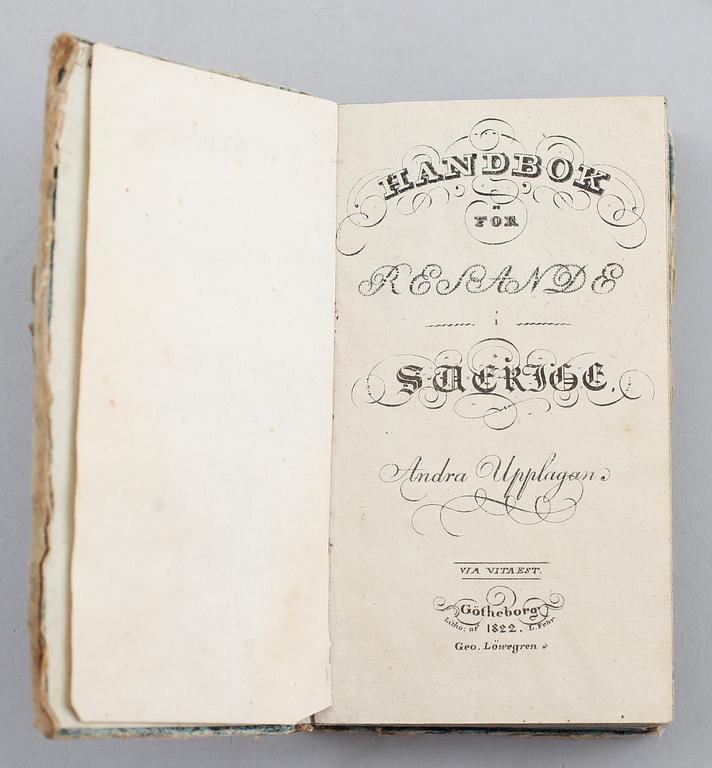 HANDBOK
FÖR
RESANDE
i
SVERIGE.
Andra Upplagan.
VIA VITA EST.
Götheborg
Litho: af 1822. L. Fehr
Geo. Löwegren.